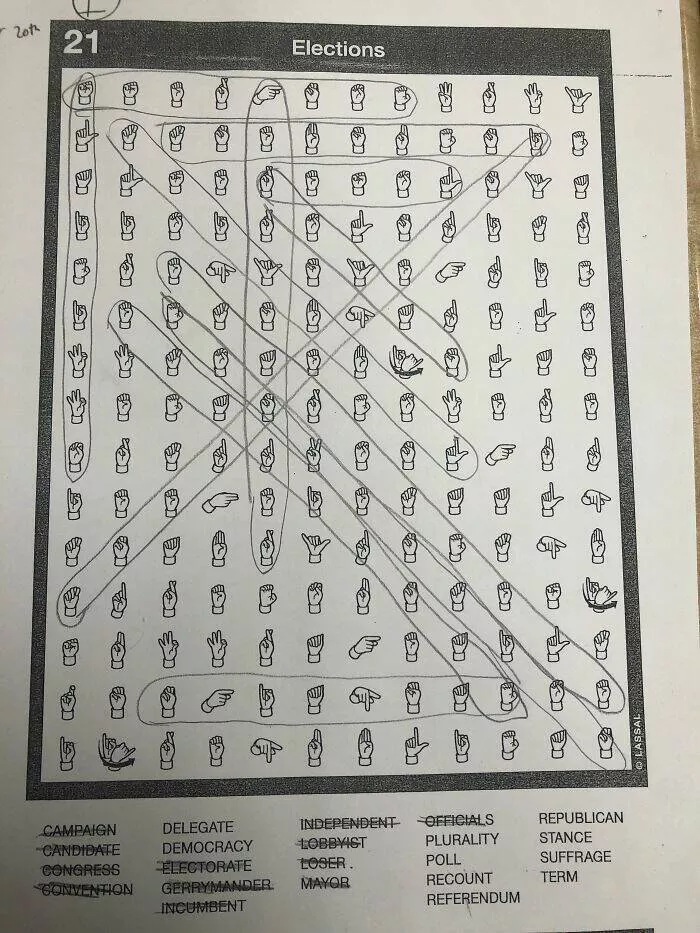 20th
21
Elections
© LASSAL
CAMPAIGN DELEGATE INDEPENDENT OFFICIALS REPUBLICAN
CANDIDATE DEMOCRACY LOBBYIST PLURALITY STANCE
CONGRESS ELECTORATE LOSER . POLL SUFFRAGE
CONVENTION GERRYMANDER MAYOR RECOUNT TERM
INCUMBENT REFERENDUM